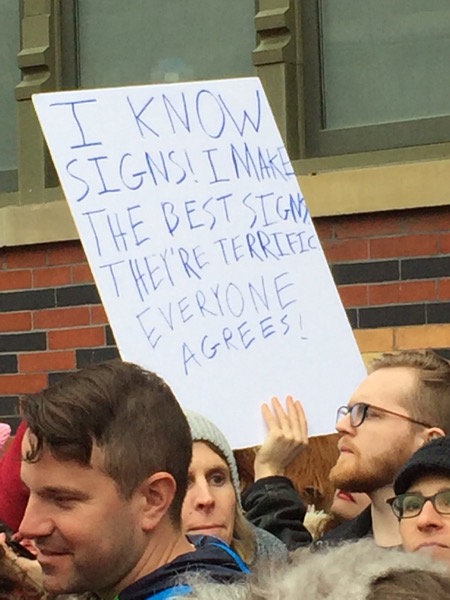 I KNOW
SIGNS! I MAKE
THE BEST SIGNS
THEY'RE TERRIFIC
EVERYONE
AGREES!